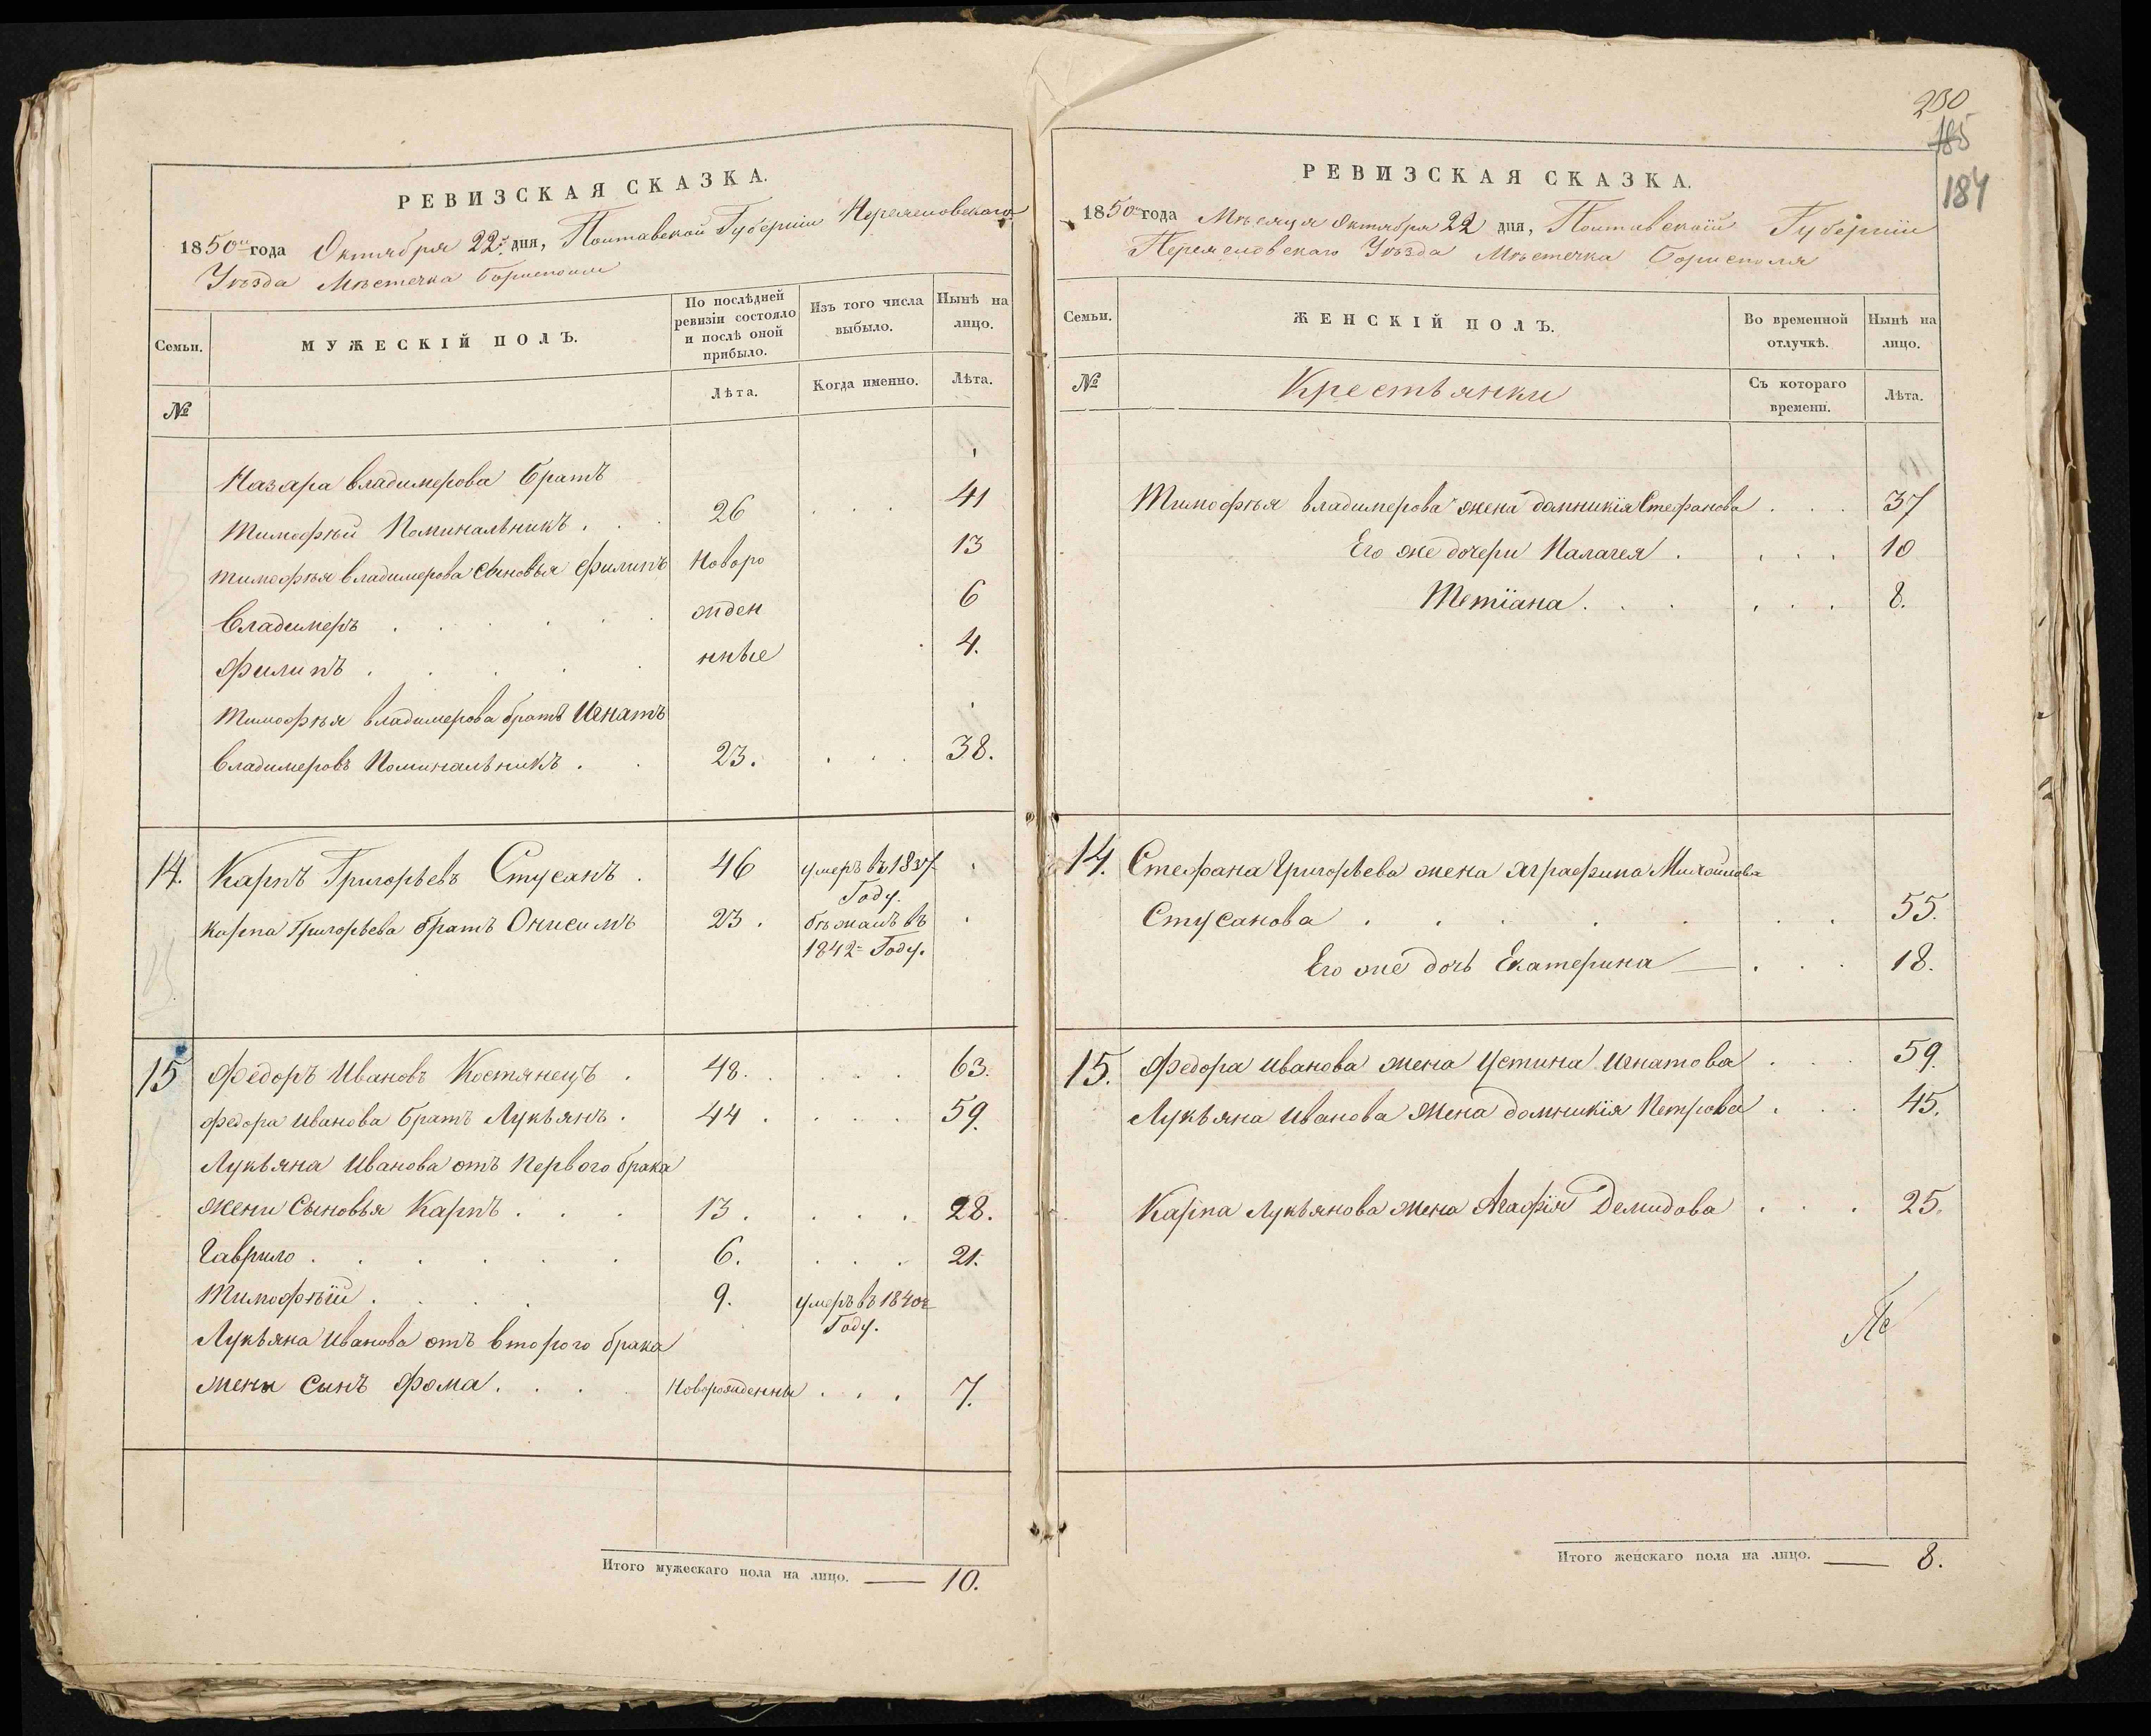 РЕВИЗСКАЯ СКАЗКА.
1850го года Октября 22го дня, Полтавской Губернiи Переяславскаго
Уѣзда Мѣстечка Борисполя
Семьи.
МУЖЕСКIЙ ПОЛЪ.
По послѣдней ревизiи состояло и послѣ оной прибыло.
Изъ того числа выбыло.
Нынѣ на лицо.
№
Лѣта.
Когда именно.
Лѣта.
Назара Владимерова братъ
Тимофѣй Поминальникъ . . . 26 . . . 41
Тимофѣя Владимерова сыновья Филипъ Новоро 13
Владимеръ . . . . . жден 6
Филипъ . . . . . нные . 4.
Тимофѣя Владимерова братъ Игнатъ
Владимеровъ Поминальникъ . . 23. . . . 38.
14. Карпъ Григорьевъ Стусанъ . 46 умеръ въ 1837 Году.
Карпа Григорьева братъ Онисимъ 23. бѣжалъ въ 1842м Году.
15 Федоръ Ивановъ Костянецъ . 48. . . . 63.
Федора Иванова братъ Лукьянъ . 44 . . . . 59.
Лукьяна Иванова отъ первого брака
жени сыновья Карпъ . . . 13. . . . 28.
Гаврило . . . . . . 6. . . . 21.
Тимофѣй . . . . 9. умеръ въ 1840м Году.
Лукьяна Иванова отъ второго брака
жены сынъ Фома . . . . Новорожденны . . . 7.
Итого мужескаго пола на лицо. — 10.
230
185
184
РЕВИЗСКАЯ СКАЗКА.
1850го года Мѣсяця Октября 22 дня, Полтавской Губернiи
Переяславскаго Уѣзда Мѣстечка Борисполя
Семьи.
ЖЕНСКIЙ ПОЛЪ.
Во временной отлучкѣ.
Нынѣ на лицо.
№
Крестьянки
Съ котораго времени.
Лѣта.
Тимофѣя Владимерова жена Домникiя Стефанова . . . 37
Его же дочери Палагея . . . . 10
Тетiана . . . . . . 8.
14. Стефана Григорьева жена Аграфина Михайлова
Стусанова . . . . . . . 55.
Его же дочь Екатерина — . . . 18.
15. Федора Иванова жена Устина Игнатова . . . 59.
Лукьяна Иванова жена Домникiя Петрова . . . 45.
Карпа Лукьянова жена Агафiя Демидова . . . 25.
Итого женскаго пола на лицо. — 8.